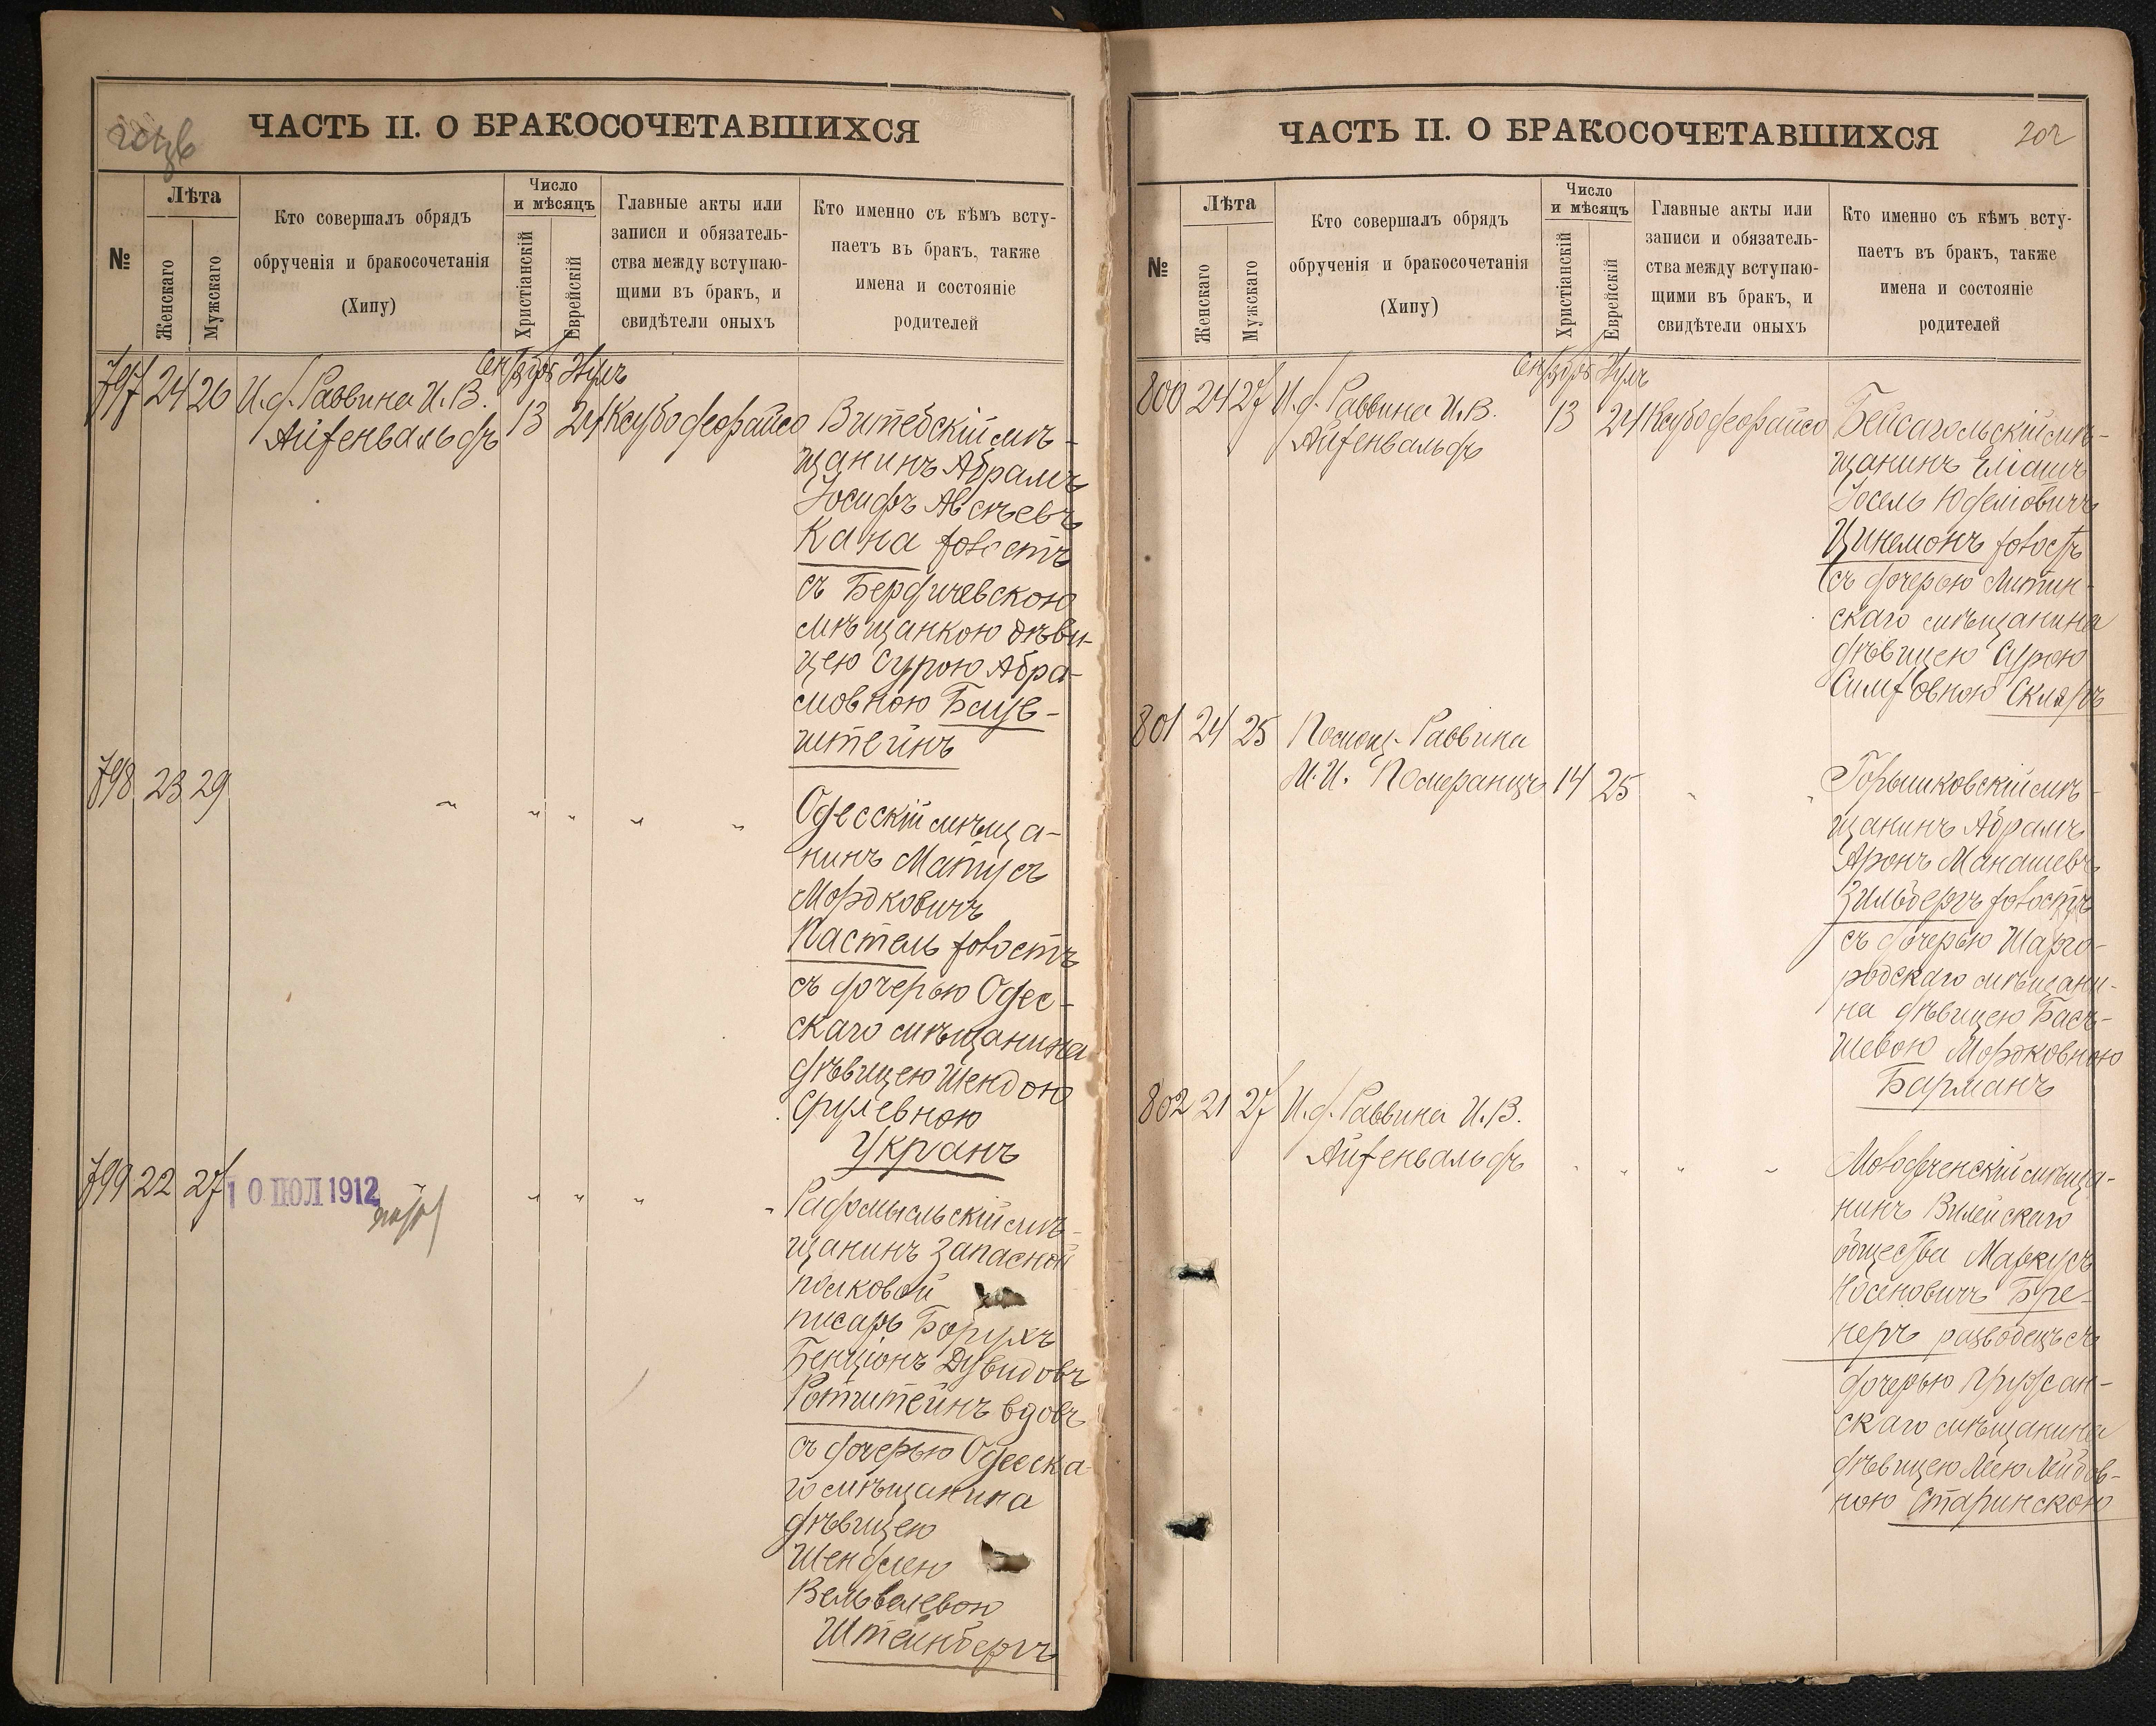 ЧАСТЬ II. О БРАКОСОЧЕТАВШИХСЯ
№
Лѣта
Женскаго
Мужскаго
Кто совершалъ обрядъ
обрученія и бракосочетанія
(Хипу)
Число
и мѣсяцъ
Христіанскій
Еврейскій
Главные акты или
записи и обязатель-
ства между вступаю-
щими въ бракъ, и
свидѣтели оныхъ
Кто именно съ кѣмъ всту-
паетъ въ бракъ, также
имена и состояніе
родителей
797 24 26 И.д. Раввина И.В.
Айзенвальдъ
13 24
Витебскій мѣ-
щанинъ Абрамъ
Іосифъ Авсѣевъ
Кана холостъ
съ Бердичевскою
мѣщанкою дѣви-
цею Сурою Абра-
мовною
штейнъ
798 23 29 " " " " "
Одесскій мѣща-
нинъ Матусъ
Мордковичъ
Пастель холостъ
съ дочерью Одес-
скаго мѣщанина
дѣвицею Шендою
Срулевною
Укранъ
799 22 27 10 ІЮЛ 1912 " " " " "
Радомысльскій мѣ-
щанинъ запасной
полковой
писарь Борухъ
Бенціонъ Дувидовъ
Ротштейнъ вдовъ
съ дочерью Одесска-
го мѣщанина
дѣвицею
Шендлею
Вельвелевою
Штейнбергъ
ЧАСТЬ II. О БРАКОСОЧЕТАВШИХСЯ
202
№
Лѣта
Женскаго
Мужскаго
Кто совершалъ обрядъ
обрученія и бракосочетанія
(Хипу)
Число
и мѣсяцъ
Христіанскій
Еврейскій
Главные акты или
записи и обязатель-
ства между вступаю-
щими въ бракъ, и
свидѣтели оныхъ
Кто именно съ кѣмъ всту-
паетъ въ бракъ, также
имена и состояніе
родителей
800 24 27 И.д. Раввина И.В.
Айзенвальдъ
13 24
Бейсагольскій мѣ-
щанинъ Еліашъ
Іосель Юделіовичъ
Цинемонъ холостъ
съ дочерью Литин-
скаго мѣщанина
дѣвицею Сурою
Симховною Скляръ
801 24 25 Помощ. Раввина
И.И. Померанцъ 14 25 " "
Горышковскій мѣ-
щанинъ Абрамъ
Аронъ Манашевъ
Зильбергъ холостъ
съ дочерью Шарго-
родскаго мѣщани-
на дѣвицею Бась-
шевою Мордковною
Барманъ
802 21 27 И.д. Раввина И.В.
Айзенвальдъ " " " "
мѣща-
нинъ Вилейскаго
общества Маркусъ
Носеновичъ Бре-
неръ разводецъ съ
дочерью
скаго мѣщанина
дѣвицею Леею Лейбов-
ною Старинскою